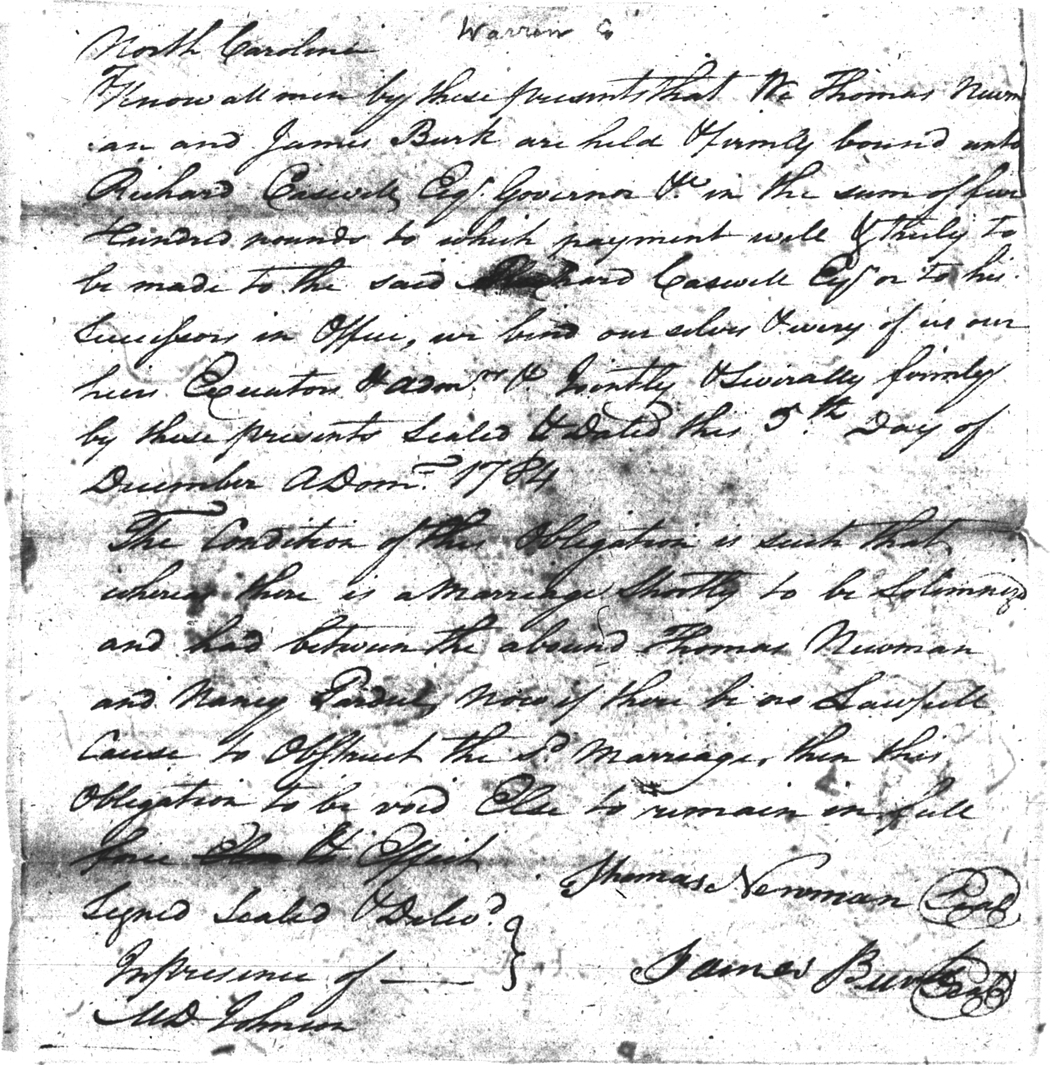 Warren Co
North Carolina
Know all men by these presents that We Thomas Newm
an and James Burk are held & firmly bound unto
Richard Caswell Esqr. Governor &c in the sum of five
Hundred pounds to which payment well & truly to
be made to the said Richard Caswell Esqr or to his
Successors in Office, we bind our selves & every of us our
heirs Executors & admrs. & Jointly & Severally firmly
by these presents Sealed & Dated this 5th. Day of
December A Dom. 1784
The Condition of this Obligation is such that
whereas there is a Marriage Shortly to be Solemnizd
and had between the abound Thomas Newman
and Nancy Pardue, now if there be no Lawfull
Cause to Obstruct the Sd. Marriage, then this
Obligation to be void Else to remain in full
force & Effect
Signed Sealed & Deliverd.
In presence of
MD Johnson
Thomas Newman Seal
James Burk Seal